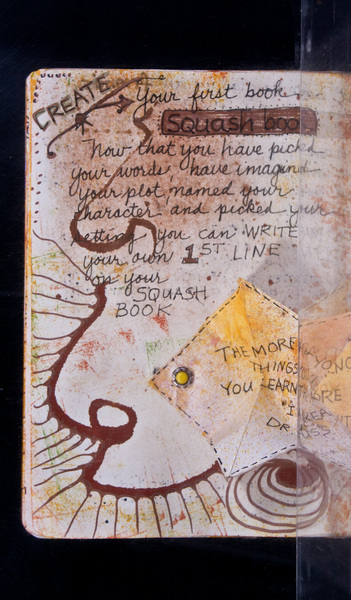 CREATE
Your first book
Squash book
Now that you have picked
your words, have imagined
your plot, named your
character and picked your
setting you can WRITE
your own 1ST LINE
on your
SQUASH
BOOK
THE MORE
THINGS
YOU LEARN